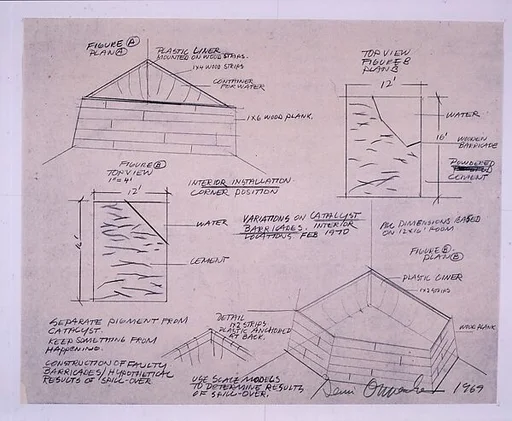 FIGURE A
PLAN A
PLASTIC LINER
MOUNTED ON WOOD STRIPS.
1X4 WOOD STRIPS
CONTAINER
FOR WATER
1X6 WOOD PLANK.
TOP VIEW
FIGURE B
PLAN B
12'
WATER
16'
WOODEN
BARRICADE
POWDERED
CEMENT
FIGURE B
TOP VIEW
1"=4'
12'
INTERIOR INSTALLATION
CORNER POSITION
WATER
CEMENT
VARIATIONS ON CATALYST
BARRICADES. INTERIOR
LOCATIONS FEB 1970
ALL DIMENSIONS BASED
ON 12X16' ROOM
FIGURE B.
PLAN B
PLASTIC LINER
1X2 STRIPS
WOOD PLANK
DETAIL
1X2 STRIPS
PLASTIC ANCHORED
AT BACK.
SEPARATE PIGMENT FROM
CATALYST.
KEEP SOMETHING FROM
HAPPENING.
CONSTRUCTION OF FAULTY
BARRICADES/HYPOTHETICAL
RESULTS OF SPILL-OVER
USE SCALE MODELS
TO DETERMINE RESULTS
OF SPILL-OVER.
1969